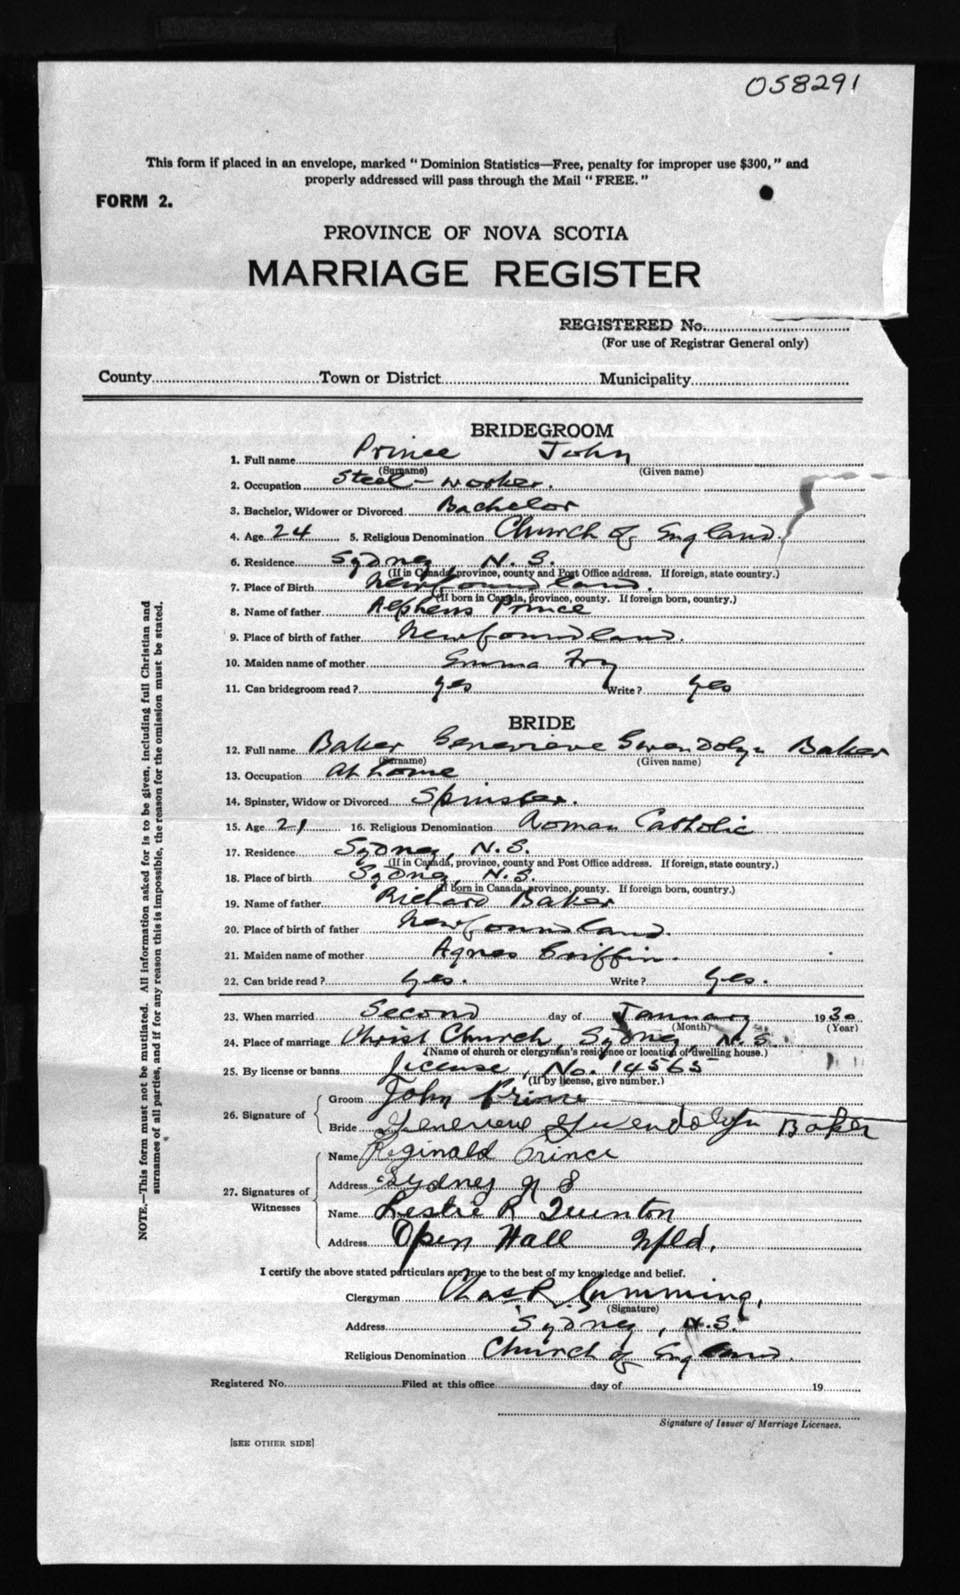 058291
This form if placed in an envelope, marked “ Dominion Statistics—Free, penalty for improper use $300, ” and
properly addressed will pass through the Mail “ FREE. ”
FORM 2.
PROVINCE OF NOVA SCOTIA
MARRIAGE REGISTER
REGISTERED No.
(For use of Registrar General only)
County Town or District Municipality
BRIDEGROOM
1. Full name Prince John
(Surname) (Given name)
2. Occupation Steel - worker.
3. Bachelor, Widower or Divorced Bachelor
4. Age 24 5. Religious Denomination Church of England.
6. Residence Sydney N. S.
(If in Canada, province, county and Post Office address. If foreign, state country.)
7. Place of Birth Newfoundland.
(If born in Canada, province, county. If foreign born, country.)
8. Name of father Alpheus Prince
9. Place of birth of father Newfoundland.
10. Maiden name of mother Emma Fry
11. Can bridegroom read ? yes Write ? yes
BRIDE
12. Full name Baker Genevieve Gwendolyn Baker
(Surname) (Given name)
13. Occupation At home
14. Spinster, Widow or Divorced Spinster.
15. Age 21 16. Religious Denomination Roman Catholic
17. Residence Sydney, N.S.
(If in Canada, province, county and Post Office address. If foreign, state country.)
18. Place of birth Sydney, N.S.
(If Born in Canada, province, county. If foreign born, country.)
19. Name of father Richard Baker
20. Place of birth of father Newfoundland.
21. Maiden name of mother Agnes Griffin.
22. Can bride read ? yes. Write ? yes.
23. When married Second day of January 1930
(Month) (Year)
24. Place of marriage Christ Church, Sydney, N.S.
(Name of church or clergyman's residence or location of dwelling house.)
25. By license or banns License, No. 14565
(If by license, give number.)
26. Signature of Groom John Prince
Bride Genevieve Gwendolyn Baker
27. Signatures of Witnesses Name Reginald Prince
Address Sydney N S
Name Leslie R Quinton
Address Open Hall Nfld.
I certify the above stated particulars are true to the best of my knowledge and belief.
Clergyman Chas R. Cumming.
(Signature)
Address Sydney, N.S.
Religious Denomination Church of England.
Registered No. Filed at this office day of 19
Signature of Issuer of Marriage Licenses.
[SEE OTHER SIDE]
NOTE.—This form must not be mutilated. All information asked for is to be given, including full Christian and
surnames of all parties, and if for any reason this is impossible, the reason for the omission must be stated.